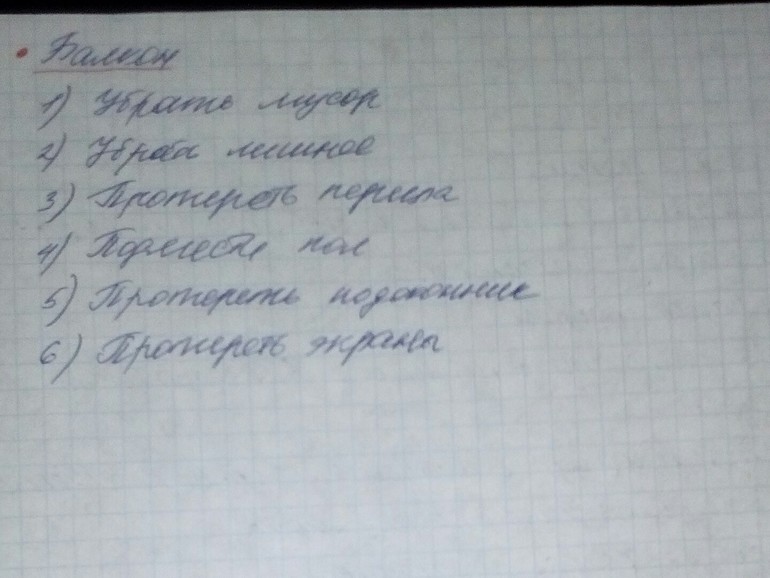 • Балкон
1) Убрать мусор
2) Убрать лишнее
3) Протереть перила
4) Подмести пол
5) Протереть подоконник
6) Протереть экраны